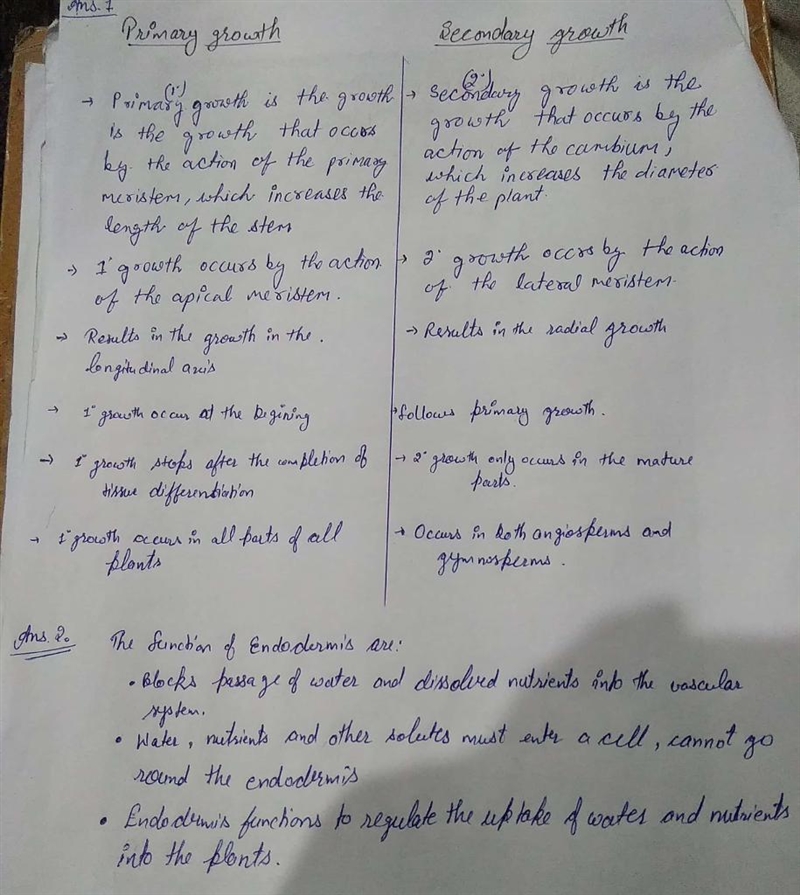 Ans. 1
Primary growth
Secondary growth
(1°)
→ Primary growth is the growth
is the growth that occors
by the action of the primary
meristem, which increases the
length of the stem
→ 1° growth occurs by the action
of the apical meristem.
→ Results in the growth in the.
longitudinal axis
→ 1° growth occur at the begining
→ 1° growth stops after the completion of
tissue differentiation
→ 1° growth occurs in all parts of all
plants
(2°)
→ Secondary growth is the
growth that occurs by the
action of the cambium,
which increases the diameter
of the plant.
→ 2° growth occrs by the action
of the lateral meristem.
→ Results in the radial growth
→ follows primary growth.
→ 2° growth only occurs in the mature
parts.
→ Occurs in both angiosperms and
gymnosperms.
Ans. 2.
The function of Endodermis are:
• Blocks passage of water and dissolved nutrients into the vascular
system.
• Water, nutrients and other solutes must enter a cell, cannot go
round the endodermis
• Endodermis functions to regulate the uptake of water and nutrients
into the plants.